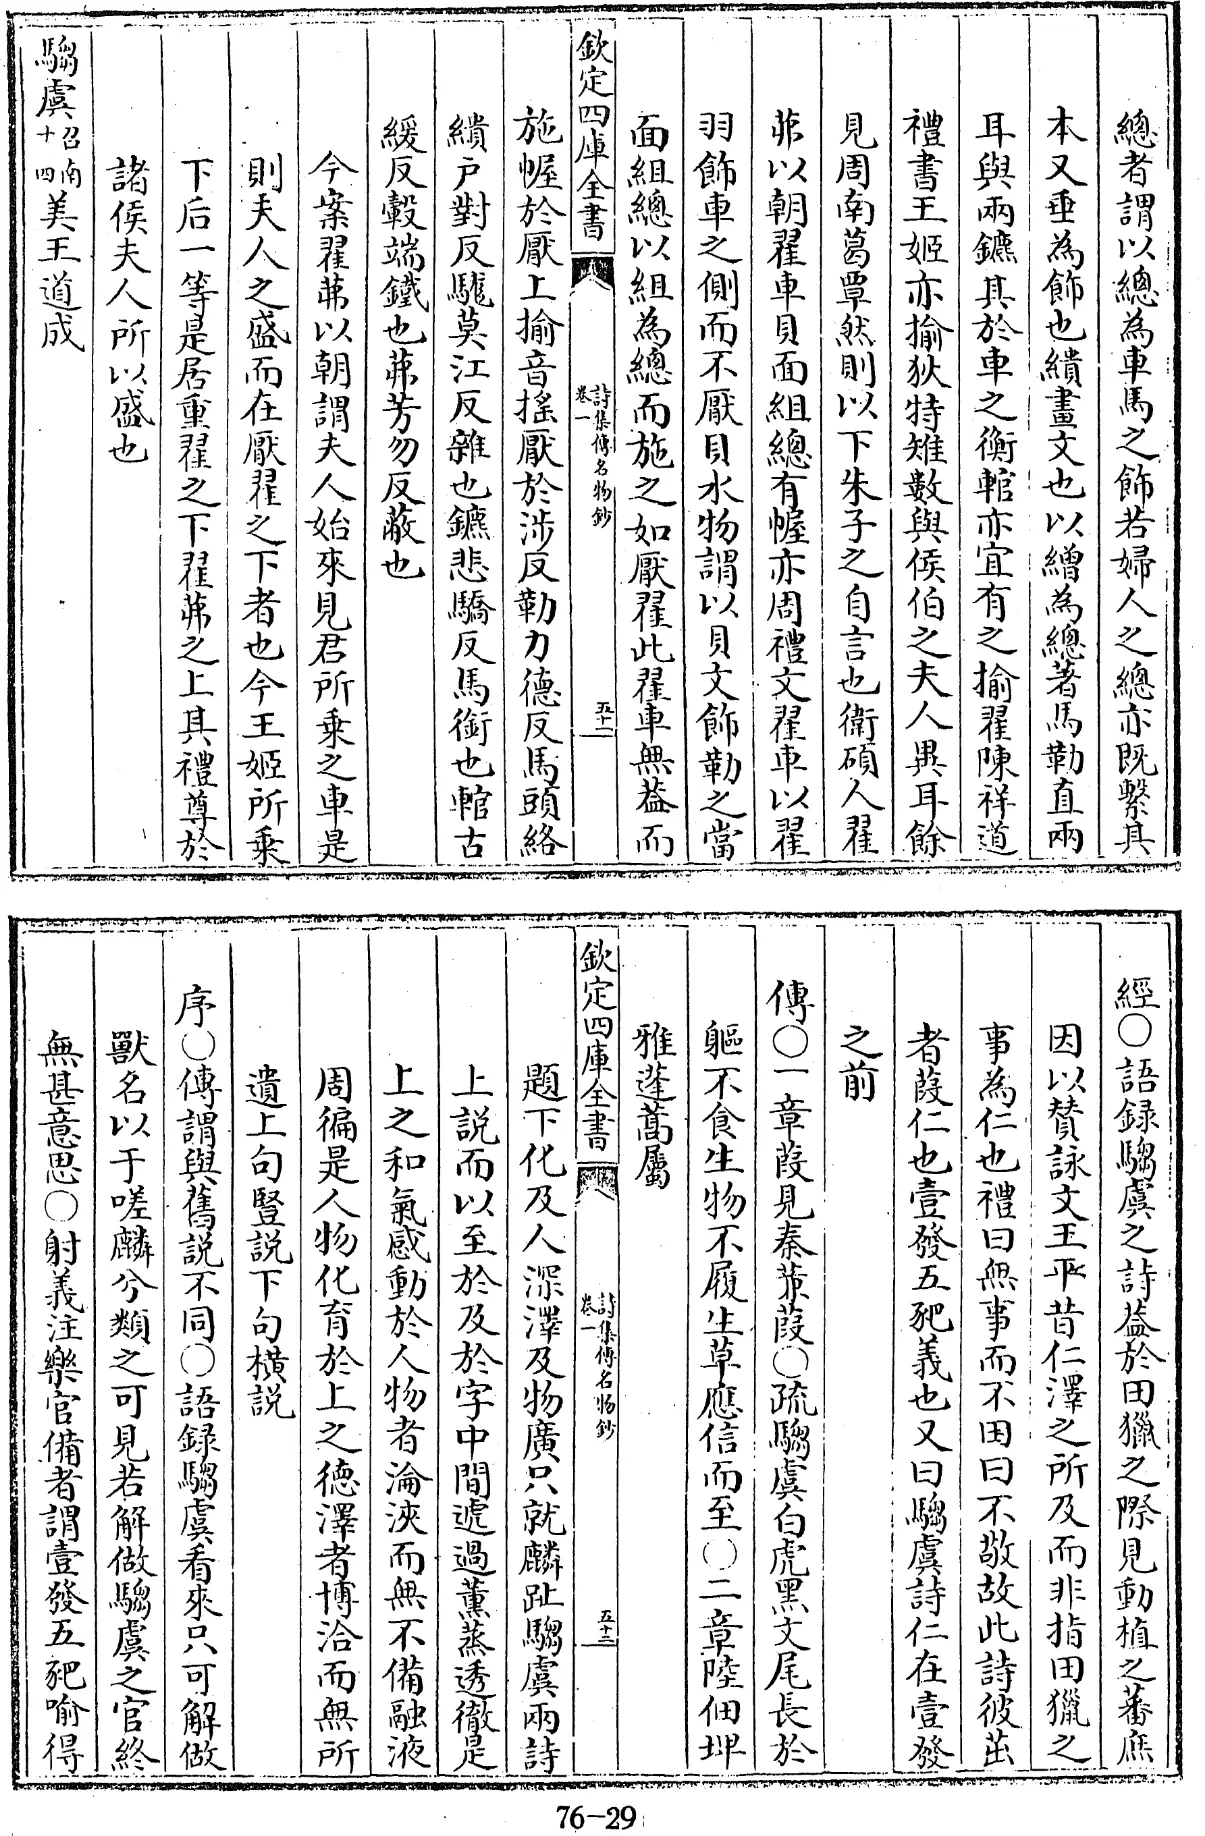 總者謂以總為車馬之飾若婦人之總亦既繫其
本又垂為飾也繢畫文也以繒為總著馬勒直兩
耳與兩鑣其於車之衡輨亦宜有之揄翟陳祥道
禮書王姬亦揄狄特雉數與侯伯之夫人異耳餘
見周南葛覃然則以下朱子之自言也衛碩人翟
茀以朝翟車貝面組總有幄亦周禮文翟車以翟
羽飾車之側而不厭貝水物謂以貝文飾勒之當
面組總以組為總而施之如厭翟此翟車無葢而
欽定四庫全書
詩集傳名物鈔
卷一
五十二
施幄於厭上揄音搖厭於渉反勒力德反馬頭絡
繢户對反駹莫江反雜也鑣悲驕反馬銜也輨古
緩反轂端鐵也茀芳勿反蔽也
今案翟茀以朝謂夫人始來見君所乗之車是
則夫人之盛而在厭翟之下者也今王姬所乗
下后一等是居重翟之下翟茀之上其禮尊於
諸侯夫人所以盛也
騶虞召南十四美王道成
經○語録騶虞之詩葢於田獵之際見動植之蕃庶
因以賛詠文王平昔仁澤之所及而非指田獵之
事為仁也禮曰無事而不田曰不敬故此詩彼茁
者葭仁也壹發五豝義也又曰騶虞詩仁在壹發
之前
傳○一章葭見秦蒹葭○疏騶虞白虎黑文尾長於
軀不食生物不履生草應信而至○二章陸佃埤
雅蓬蒿屬
欽定四庫全書
詩集傳名物鈔
卷一
五十三
題下化及人深澤及物廣只就麟趾騶虞兩詩
上説而以至於及於字中間遞過薰蒸透徹是
上之和氣感動於人物者淪浹而無不備融液
周徧是人物化育於上之德澤者博洽而無所
遺上句豎説下句横説
序○傳謂與舊説不同○語録騶虞看來只可解做
獸名以于嗟麟兮類之可見若解做騶虞之官終
無甚意思○射義注樂官備者謂壹發五豝喻得
76-29